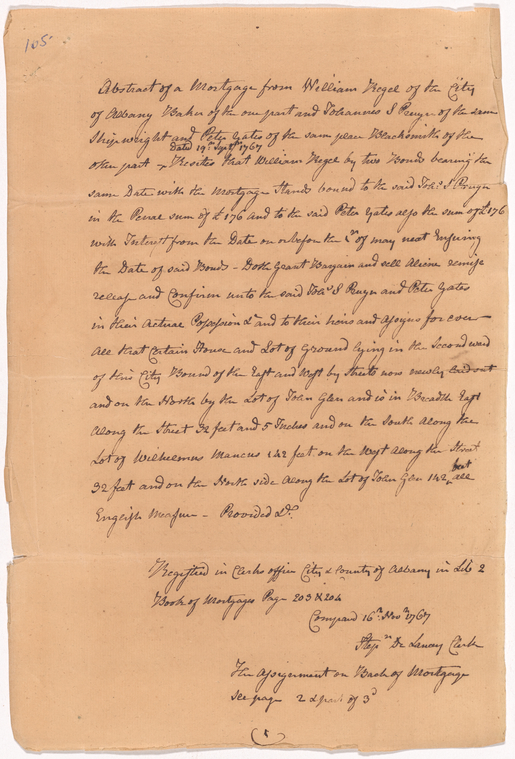 105
Abstract of a Mortgage from William Hegel of the City
of Albany Baker of the one part and Johannes S Pruyn of the same
Shipwright and Peter Yates of the same place Blacksmith of the
Dated 19th Septr 1767
other part - Recites that William Hegel by two Bonds bearing the
same Date with the Mortgage Stands bound to the said Johs S Pruyn
in the Penal sum of £176 and to the said Peter Yates also the sum of £176
with Interest from the Date on or before the of may next Ensuing
the Date of said Bonds - Doth Grant Bargain and sell Aliene remise
release and Confirm unto the said Johs S Pruyn and Peter Yates
in their Actual Possession &c and to their heirs and Assigns for ever
all that Certain House and Lot of Ground lying in the Second ward
of this City Bound of the East and West by Streets now newly laid out
and on the North by the Lot of John Glen and is in Breadth East
along the Street 32 feet and 5 Inches and on the South along the
Lot of Wilhelmus Mancus 142 feet on the West along the Street
32 feet and on the North side along the Lot of John Glen 142 feet all
English Measure - Provided &c
Registred in Clerks office City & County of Albany in Lib 2
Book of Mortgages Page 203 & 204
Compared 16th Novr 1767
Stepn De Lancey Clerk
The Assignment on Back of Mortgage
see page 2 & part of 3d